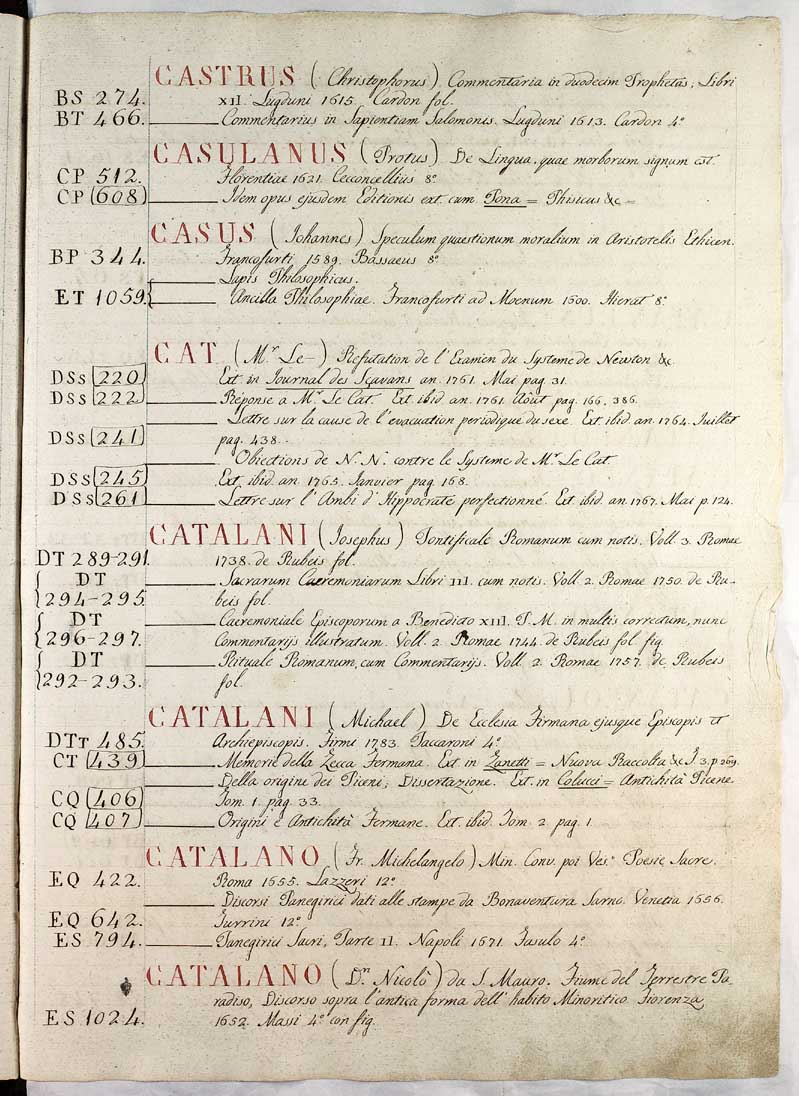 CASTRUS (Christophorus). Commentaria in duodecim Prophetas; Libri
BS 274. XII. Lugduni 1615. Cardon fol.
BT 466. Commentarius in Sapientiam Salomonis. Lugduni 1613. Cardon 4°
CASULANUS (Protus) De Lingua, quae morborum signum est.
CP 512. Florentiae 1621. Cecconcellius 8°
CP (608) Idem opus ejusdem Editionis ext. cum Pona = Phisicus &c =
CASUS (Johannes) Speculum quaestionum moralium in Aristotelis Ethicen.
BP 344. Francofurti 1589. Bassaeus 8°
Lapis Philosophicus.
ET 1059. Ancilla Philosophiae. Francofurti ad Moenum 1600. Hierat 8°
CAT (Mr. Le-) Refutation de l'Examen du Systeme de Newton &c.
DSs 220 Ext. in Journal des Scavans an. 1761. Mai pag. 31.
DSs 222 Réponse a Mr. Le Cat. Ext. ibid. an. 1761. Aôut pag. 166, 386.
Lettre sur la cause de l'evacuation periodique du sexe. Ext. ibid. an. 1764. Juillet
DSs 241 pag. 438.
Obiections de N.N. contre le Systeme de Mr. Le Cat.
DSs 245 Ext. ibid. an 1765. Janvier pag. 168.
DSs 261 Lettre sur l'Ambi d'Hippocrate perfectionné. Ext. ibid. an. 1767. Mai p. 124.
CATALANI (Iosephus) Pontificale Romanum cum notis. Voll. 3. Romae
DT 289-291. 1738. de Rubeis fol.
DT Sacrarum Caeremoniarum Libri III. cum notis. Voll. 2. Romae 1750. de Ru-
294-295. beis fol.
DT Caeremoniale Episcoporum a Benedicto XIII. P.M. in multis correctum, nunc
296-297. Commentarijs illustratum. Voll. 2. Romae 1744. de Rubeis fol. fig.
DT Rituale Romanum, cum Commentarijs. Voll. 2. Romae 1757. de Rubeis
292-293. fol.
CATALANI (Michael) De Ecclesia Firmana ejusque Episcopis et
DTt 485. Archiepiscopis. Firmi 1783. Paccaroni 4°
CT 439 Memorie della Zecca Fermana. Ext. in Zanetti = Nuova Raccolta &c T. 3. p 269.
Della origine dei Piceni; Dissertazione. Ext. in Colucci = Antichità Picene
CQ 406 Tom. 1. pag. 33.
CQ 407 Origini e Antichità Fermane. Ext. ibid. Tom. 2. pag. 1.
CATALANO (Fr. Michelangelo) Min. Conv. poi Ves° Poesie Sacre.
EQ 422. Roma 1655. Lazzeri 12°
Discorsi Panegirici dati alle stampe da Bonaventura Sarno. Venetia 1656.
EQ 642. Turrini 12°
ES 794. Panegirici Sacri, Parte II. Napoli 1671. Fasulo 4°
CATALANO (Dn. Nicolò) da S. Mauro. Fiume del Terrestre Pa-
radiso, Discorso sopra l'antica forma dell'habito Minoritico. Fiorenza
ES 1024. 1652. Massi 4° con fig.